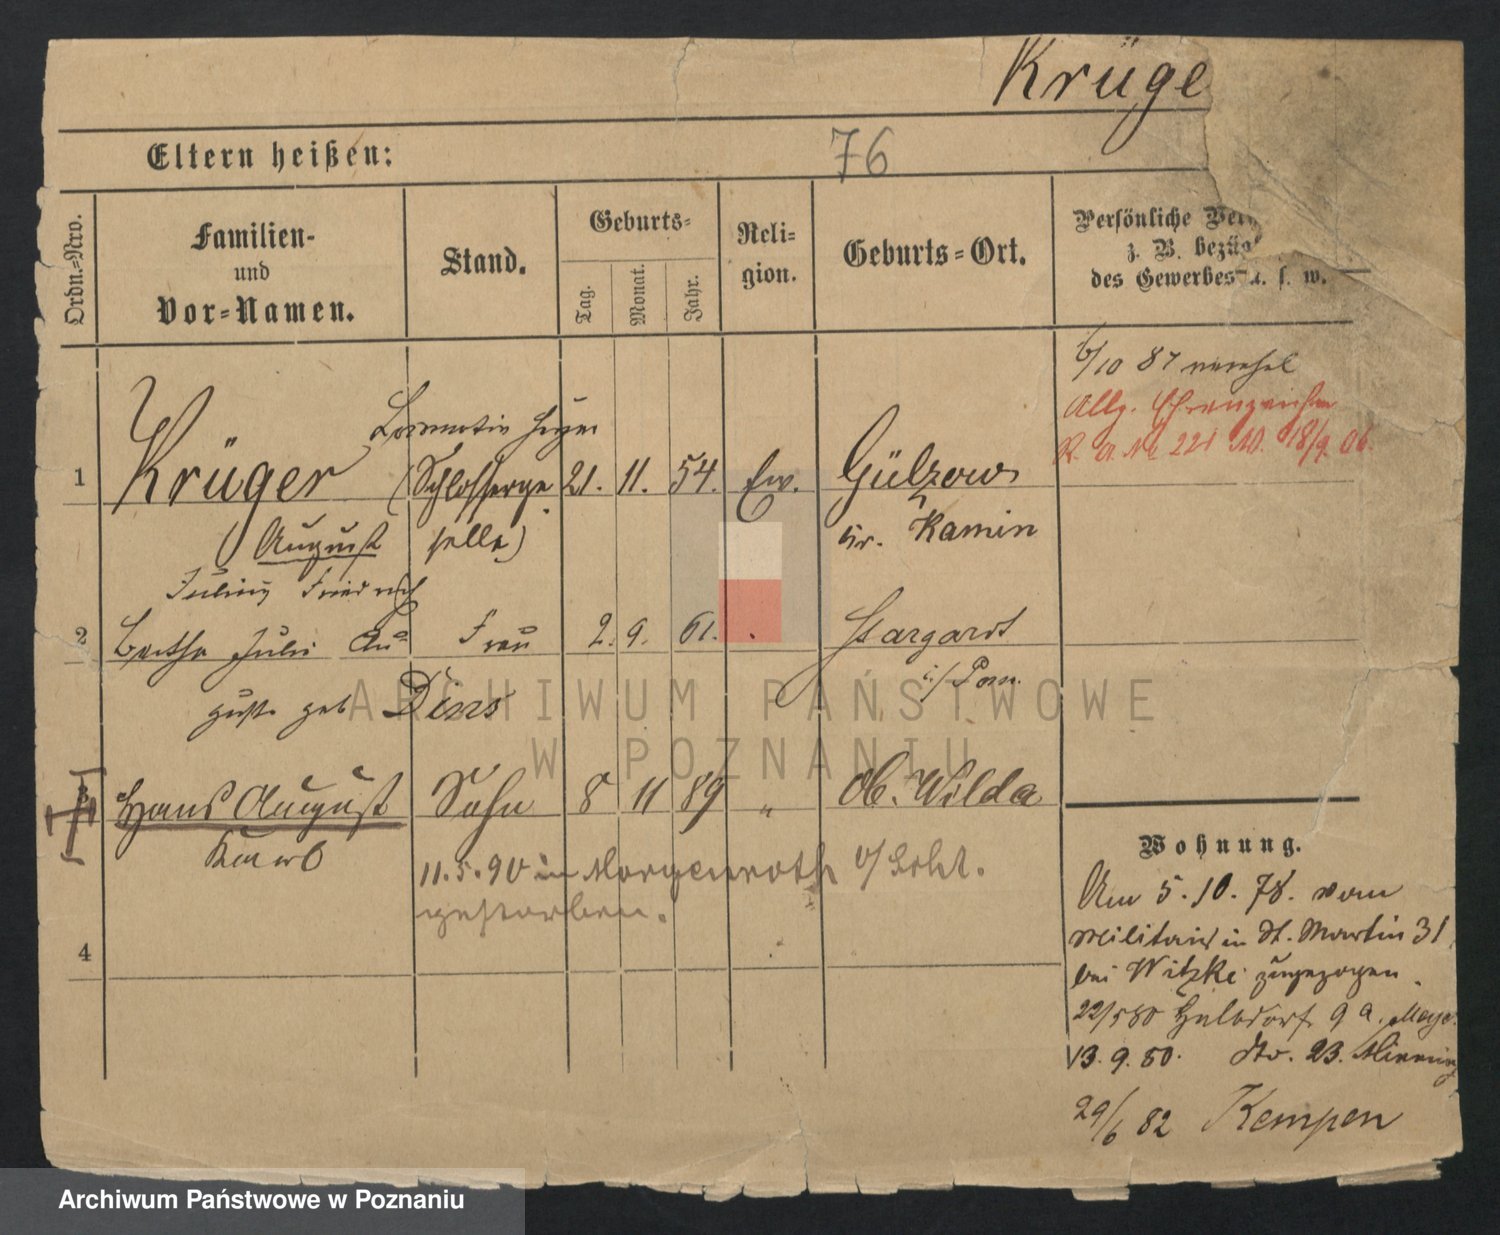 Krüge
Eltern heißen:
76
Ordn.-Nro.
Familien-
und
Vor-Namen.
Stand.
Geburts-
Tag.
Monat.
Jahr.
Reli-
gion.
Geburts-Ort.
Persönliche Ver
z. B. bezüg
des Gewerbes u. s. w.
6/10 87
Allg. Ehrenzeichen
221 18/9 06.
Locomotiv
1 Krüger (Schlosserge 21. 11. 54. Ev. Gülzow
(August selle) Kr. Kamin
Julius Friedrich
2 Bertha Julie Au= Frau 2. 9. 61. Stargard
guste geb Dins i/Pom.
3 Hans August Sohn 8 11 89 " Ob. Wilda
11.5.90 in Morgenroth O/Schl.
gestorben.
4
Wohnung.
Am 5.10.78. vom
Militair in St. Martin 31
bei Witzke zugezogen.
22/5 80 Halbdorf 9 a.
13.9.80. dto. 23.
29/6 82 Kempen
ARCHIWUM PAŃSTWOWE
W POZNANIU
Archiwum Państwowe w Poznaniu